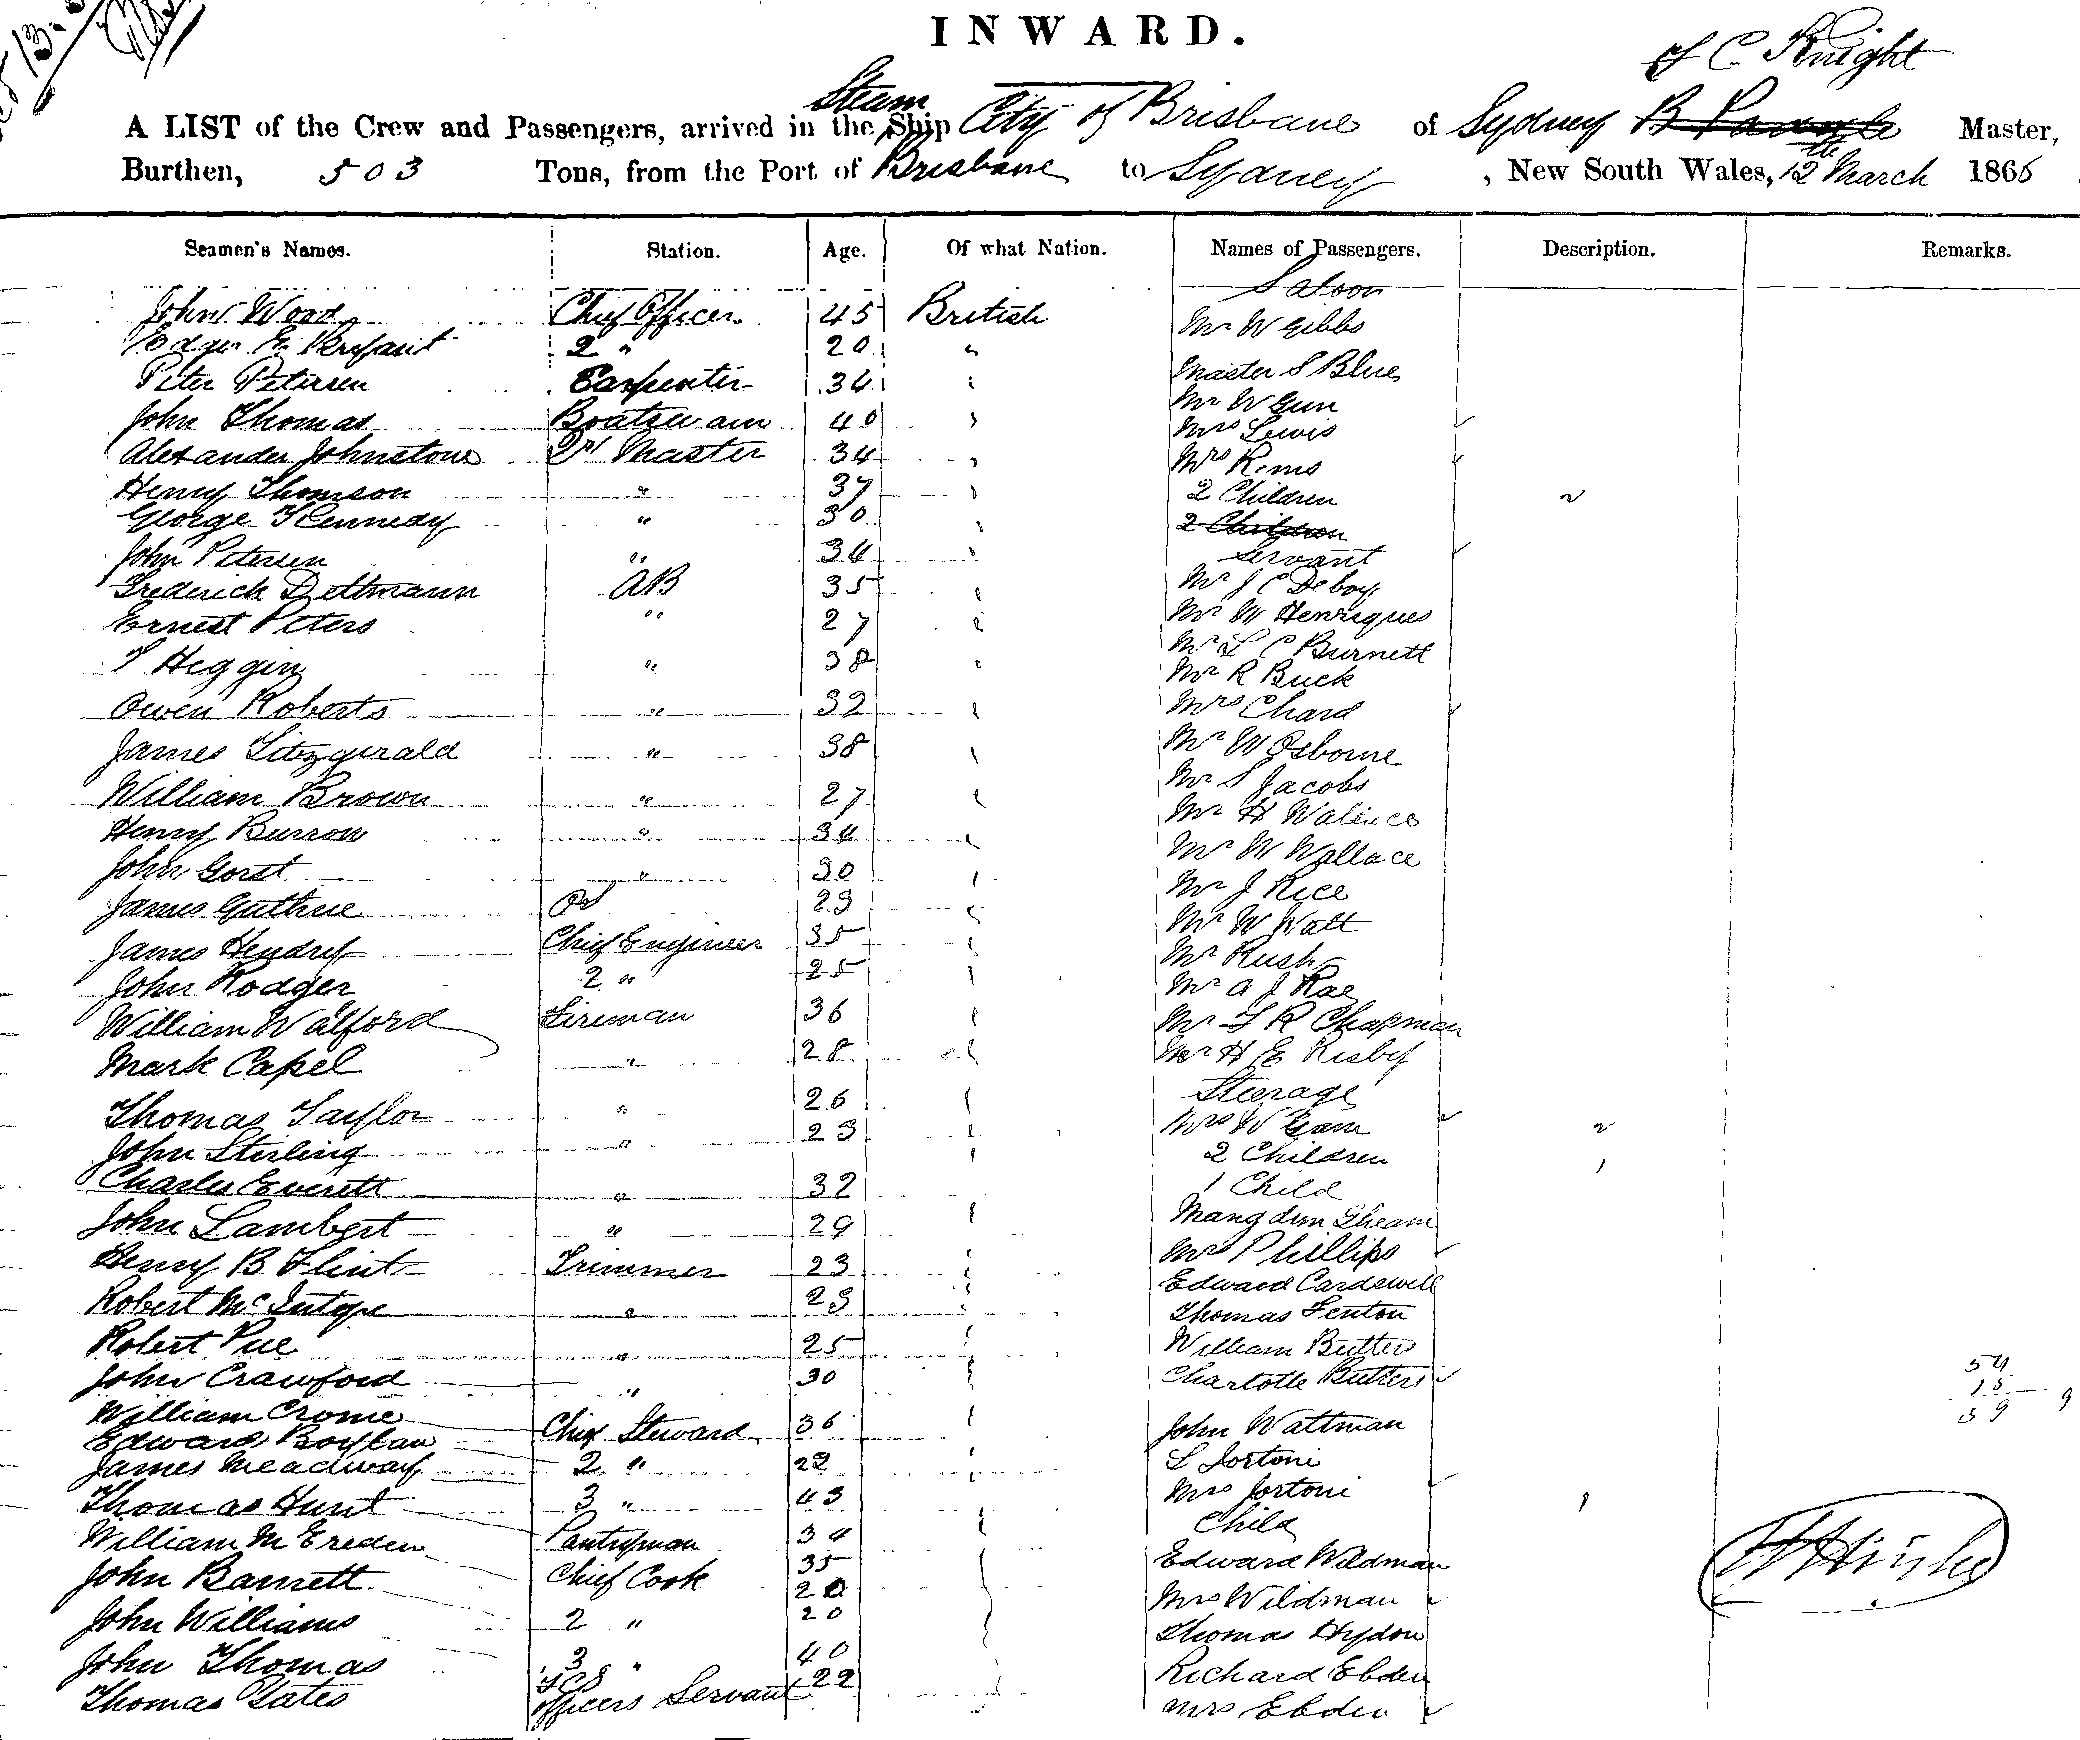 INWARD.
of C. Knight
Steam
A LIST of the Crew and Passengers, arrived in the Ship City of Brisbane of Sydney Master,
Burthen, 503 Tons, from the Port of Brisbane to Sydney, New South Wales, 12th March 1866
Seamen's Names. Station. Age. Of what Nation. Names of Passengers. Description. Remarks.
Saloon
John Wood Chief Officer 45 British Mr W Gibbs
2 " 20 "
Peter Petersen Carpenter 34 " Master S Blue
John Thomas Boatswain 40 " Mr W Gun
Mrs Lewis
Alexander Johnstone Qr Master 34 " Mrs Rems
Henry Thomson " 37 " 2 Children 2
George Kennedy " 30 " 2 Children
John Petersen " 34 " Servant
Frederick Dettmann AB 35 " Mr J C Deboy
Ernest Peters " 27 " Mr M Henriques
Mr L C Burnett
T Heggin " 38 " Mr R Buck
Owen Roberts " 32 " Mrs Chard
James Fitzgerald " 38 " Mr W Osborne
Mr S Jacobs
William Brown " 27 " Mr H
Henry Burrow " 34 " Mr W Wallace
John Gorst " 30 " Mr J Rice
James Guthrie 23 " Mr W Watt
James Hendry Chief Engineer 35 " Mr Rush
John Rodger 2 " 25 " Mr A J Rae
William Walford Fireman 36 " Mr T R Chapman
Mark Capel " 28 " Mr H E Risby
Steerage
Thomas Taylor " 26 " Mrs W Gam
John Stirling " 23 " 2 Children 2
Charles Everett " 32 1 Child 1
John Lambert " 29 "
Mrs Phillips
Henry B Flint Trimmer 23 " Edward Cardewell
Robert McIntyre " 23 " Thomas Fenton
Robert Pue " 25 " William Butters
John Crawford " 30 " Charlotte Butters
54
15
59 9
William Crome Chief Steward 36 " John Wattman
Edward Boylan
James Meadway 2 " 22 " L Jortoni
Thomas Hunt 3 " 43 " Mrs Jortoni
Child 1
William M Ereden Pantryman 34 " Edward Wildman
John Barnett Chief Cook 35
20 Mrs Wildman
John Williams 2 " 20 Thomas Hydon
John Thomas 3 " 40 Richard Ebden
Thomas Yates Officers Servant 22 Mrs Ebden